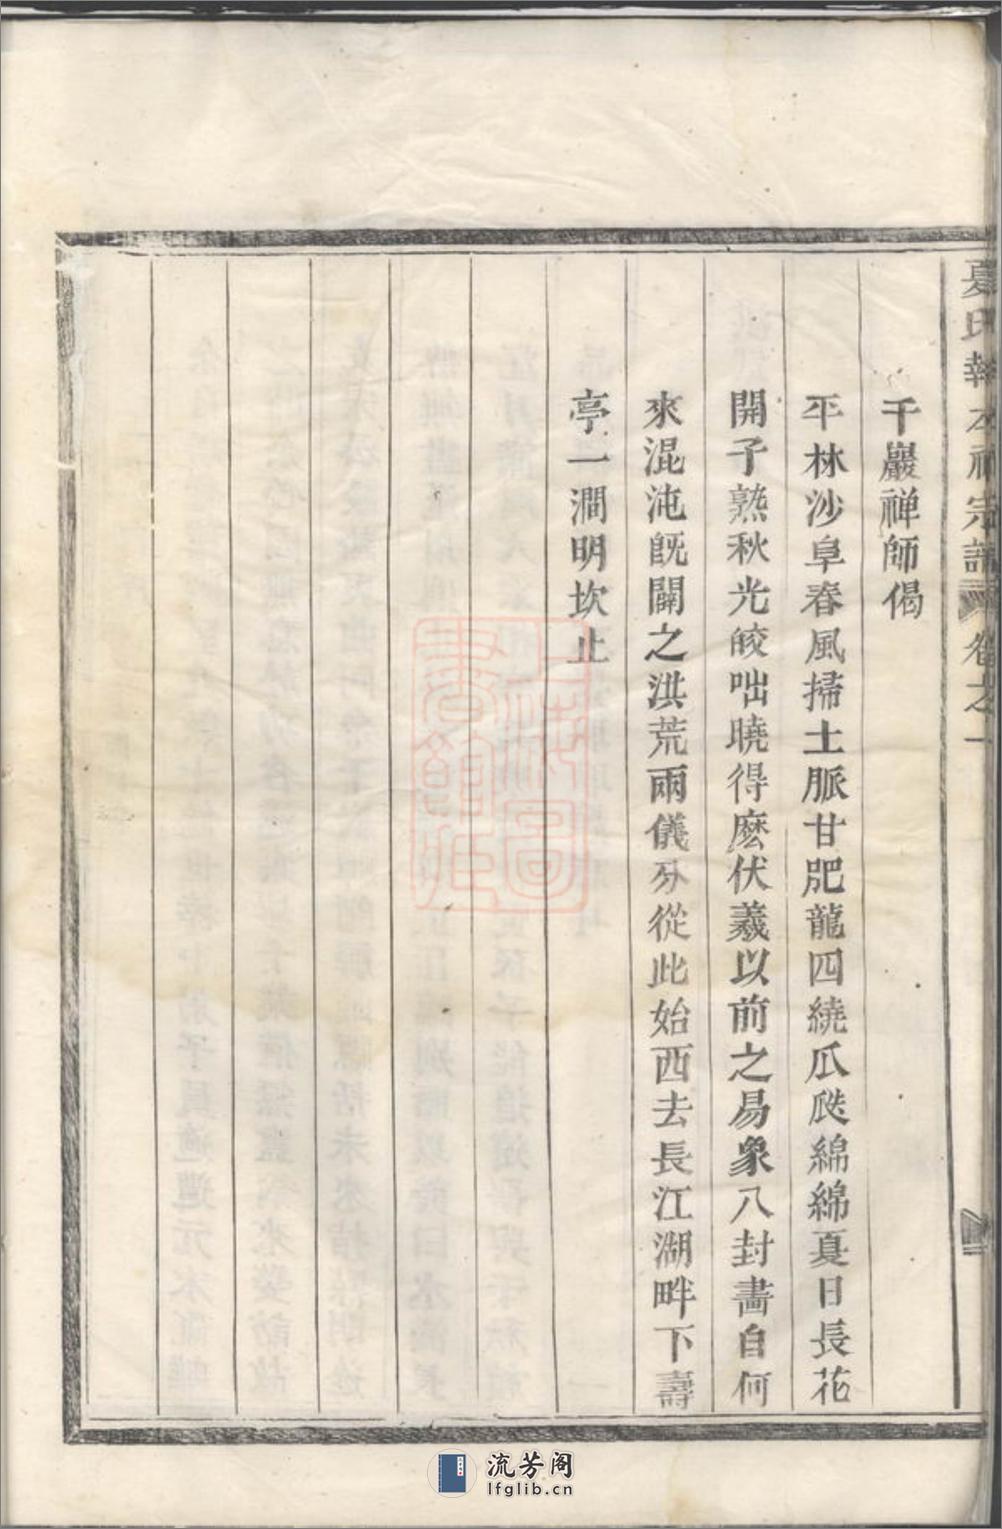 夏氏幹本祠宗譜 卷之一
千巖禅師偈
平林沙阜春風掃土脈甘肥龍四繞瓜瓞綿綿夏日長花
開子熟秋光皎咄曉得麽伏羲以前之易象八封畵自何
來混沌旣闢之洪荒兩儀分從此始西去長江湖畔下壽
亭一澗明坎止
流芳阁
lfglib.cn